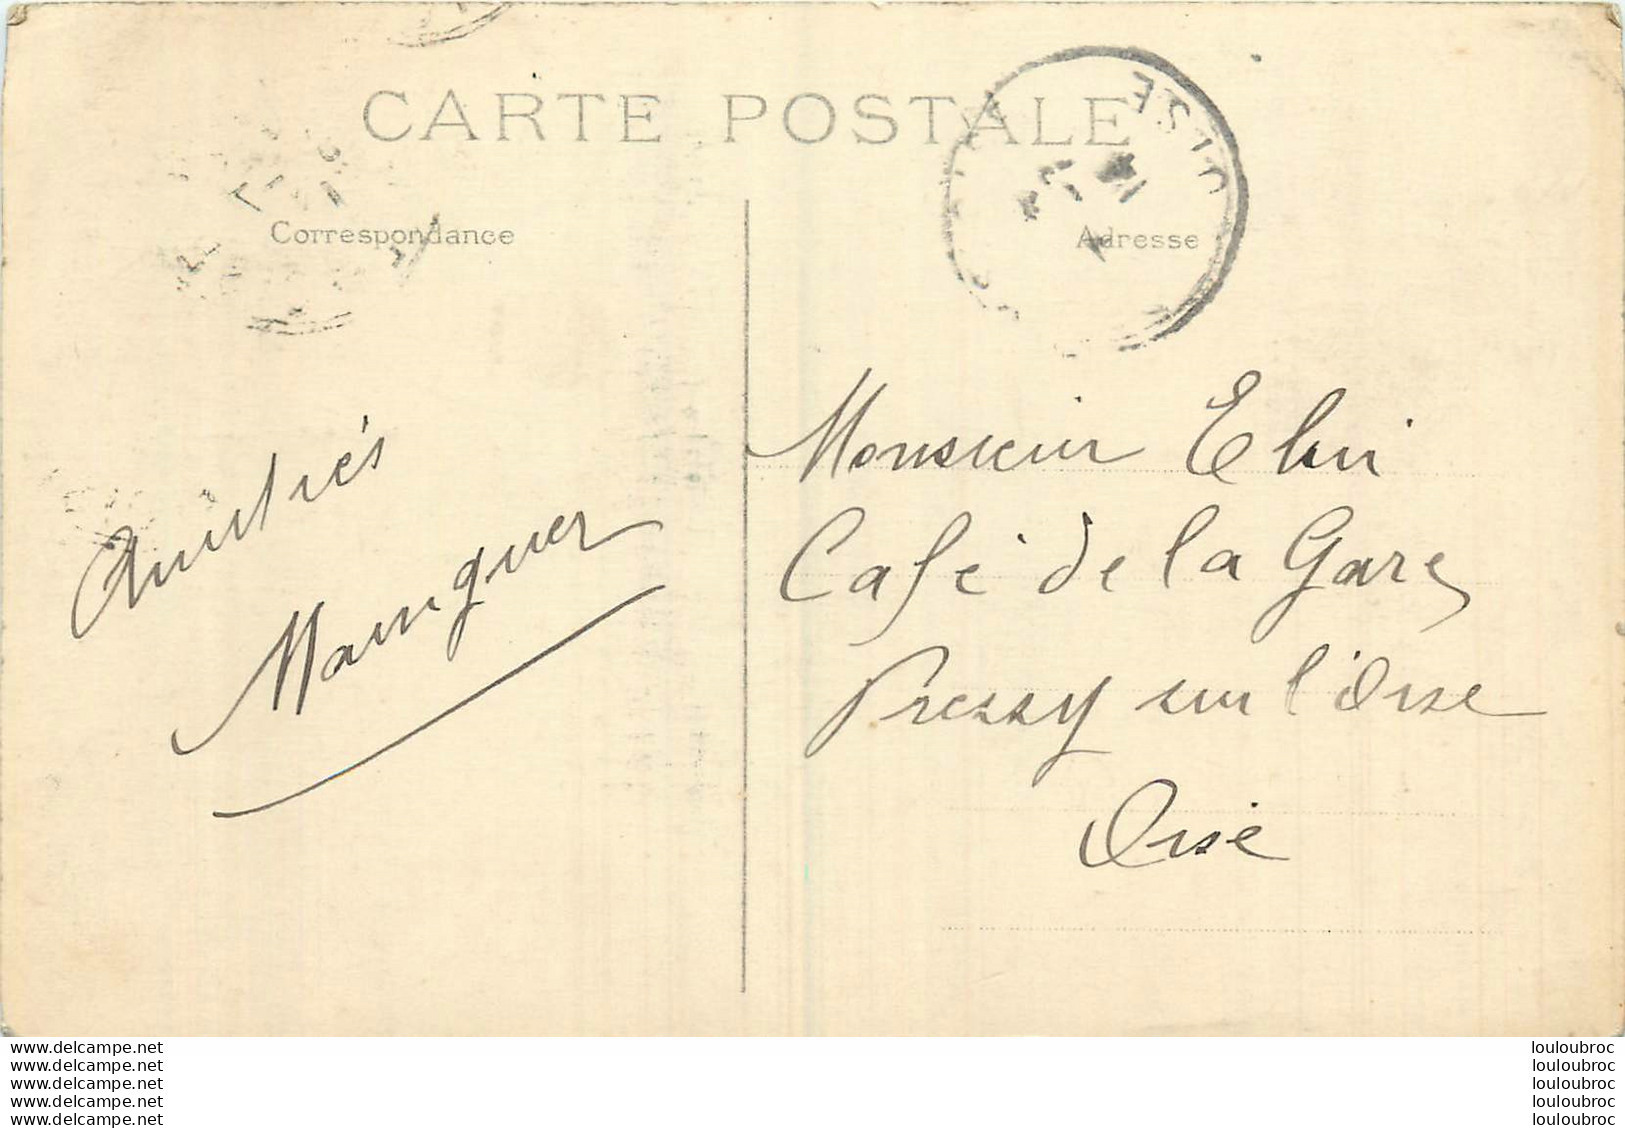 CARTE POSTALE
Correspondance
Adresse
OISE
Amitiés
Monsieur
Café de la Gare
Pressy sur l'Oise
Oise
www.delcampe.net
www.delcampe.net
www.delcampe.net
www.delcampe.net
www.delcampe.net
louloubroc
louloubroc
louloubroc
louloubroc
louloubroc